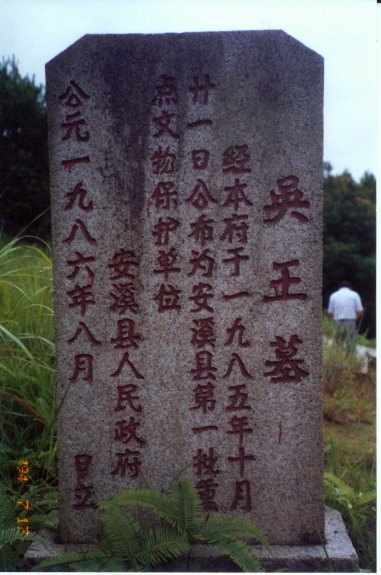 吳王墓
经本府于一九八五年十月
廿一日公布为安溪县第一批重
点文物保护单位
安溪县人民政府
公元一九八六年八月 日立
'94 7 12